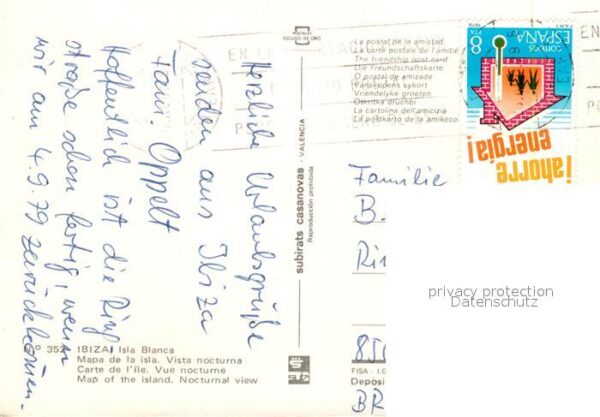 POSTALES
ESCUDO DE ORO
La postal de la amistad
La carte postale de l'amitié
The friendship post card
Die Freundschaftskarte
O postal de amizade
Vänskapens vykort
Vriendelyke groeten
La cartolina dell'amicizia
La postkarta de la amikeco
CORREOS
ESPAÑA
8
PTA
¡ahorre
energía!
Herzliche Urlaubsgrüße
senden aus Ibiza
Fam. Oppelt
Hoffentlich ist die Ring
straße schon fertig, wenn
wir am 4.9.79 zurückkommen.
subirats casanovas - VALENCIA
Reproducción prohibida
Familie
B.
Rin
850
BR
privacy protection
Datenschutz
IBIZA, Isla Blanca
Mapa de la isla. Vista nocturna
Carte de l'île. Vue nocturne
Map of the island. Nocturnal view
FISA - I.G
Deposi